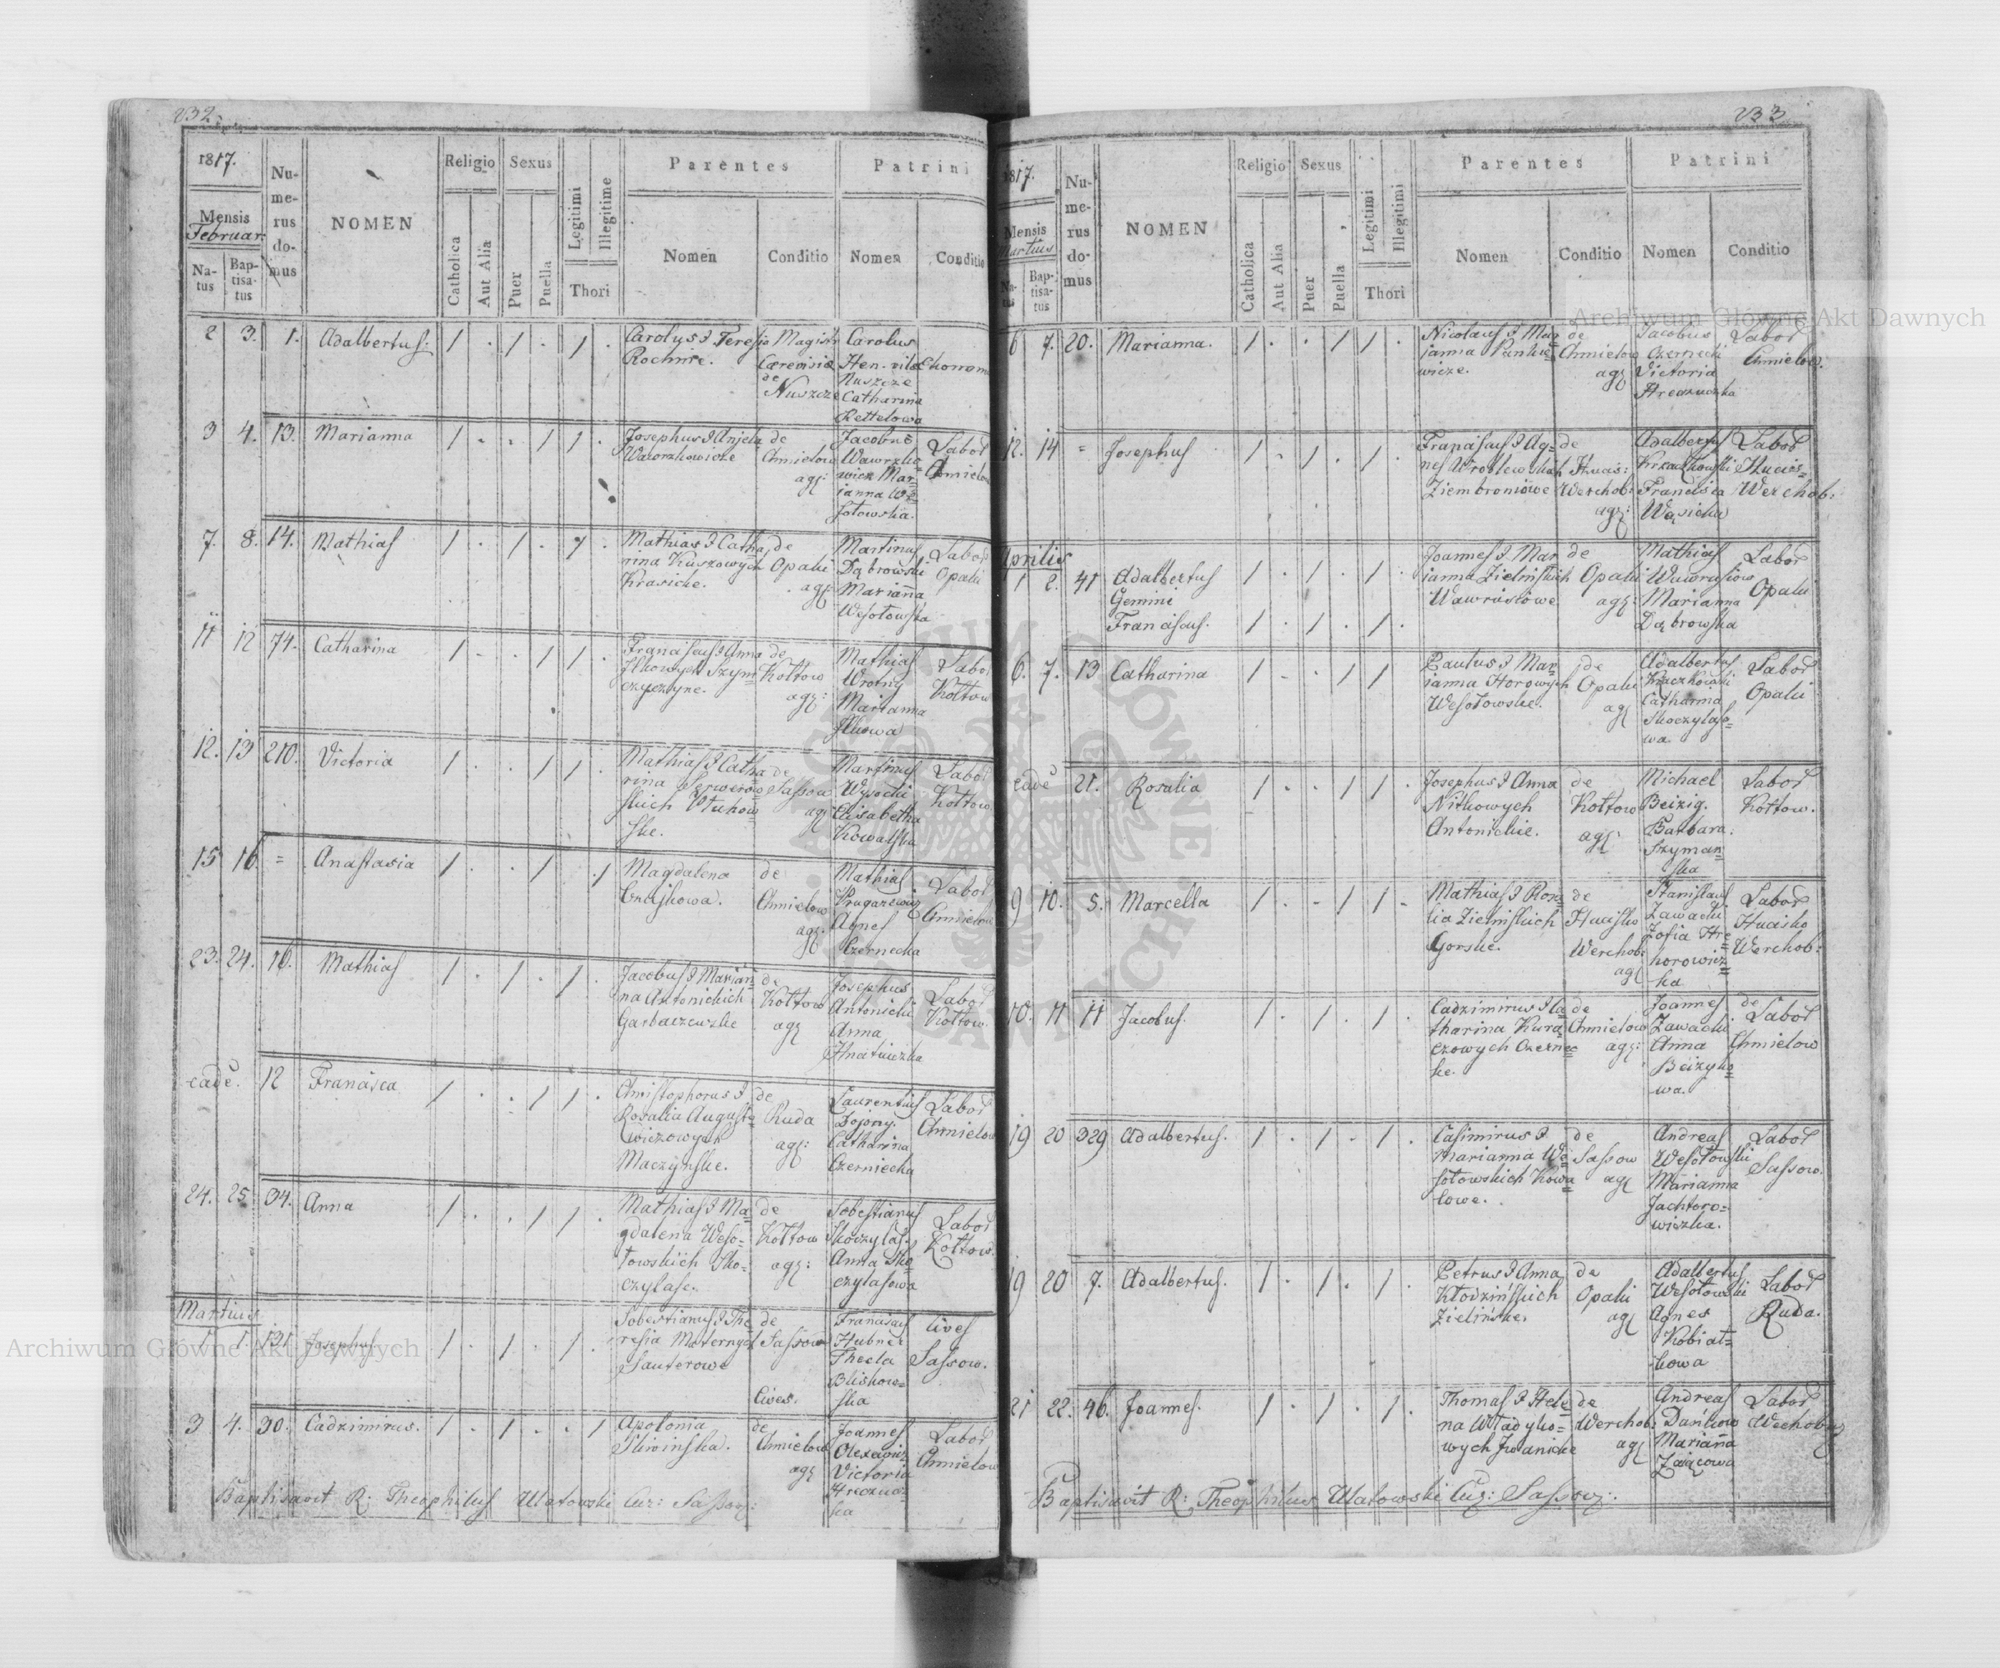 232.
1817.
Mensis
Februar:
Na-
tus
Bap-
tisa-
tus
Nu-
me-
rus
do-
mus
NOMEN
Religio
Catholica
Aut Alia
Sexus
Puer
Puella
Legitimi
Illegitime
Thori
Parentes
Nomen
Conditio
Patrini
Nomen
Conditio
2 3. 1. Adalbertus. / . / . / .
Carolus & Teresia
Magistr
Cerevisiæ
de
Nuszcze
Carolus
Nuszcze
Catharina
Rettelowa
3 4. 13. Marianna / . . / / .
Josephus & Anjela
de
Chmielow
agr:
Jacobus
Wawrzko
wicz Mar
janna We
sotowska.
Labor
Chmielow
7. 8. 14. Mathias / . / . / .
Mathias & Catha
rina Kuszowych
Krasicke.
de
Opaki
agr
Martinus
Dąbrowski
Marianna
Wesotowska
Labor
Opaki
11 12 74. Catharina / . . / / .
Francisus & Anna
de
Kottow
agr:
Mathias
Wrotny
Marianna
Ilkowa
Labor
Kottow
12. 13 210. Victoria / . . / / .
Mathias & Catha
rina
ske.
de
Sassow
agr
Martinus
Wysocki
Elisabetha
Kowalska
Labor
Kottow
15 16. = Anastasia / . . / . /
Magdalena
de
Chmielow
agr.
Mathias
Agnes
Czernecka
Labor
Chmielow
23. 24. 16. Mathias / . / . / .
Jacobus & Marian
na Antonickich
Garbaczewske
de
Kottow
agr
Josephus
Antonicki
Anna
Hnatiuczka
Labor
Kottow.
eadē. 12 Francisca / . . / / .
Christophorus &
Rosalia Augusty
wiczowych
Maczynske.
de
Ruda
agr:
Laurentius
Dojony.
Catharina
Czerniecka
Labor
Chmielow
24. 25. 34. Anna / . . / / .
Mathias & Ma
gdalena Weso-
towskich Sko-
czylase.
de
Kottow
agr:
Sobestianus
Skoczylas.
Anna Sko
czylasowa
Labor
Kottow.
Martius
1 1. 131. Josephus / . / . / .
Sobestianus & The
resia Maternych
Sauterowe
de
Sassow
Cives.
Francisus
Hubner
Thecla
Bliskow-
ska
Cives
Sassow.
3 4. 30. Cadzimirus. / . / . . /
Apolonia
Sliwinska.
de
Chmielow
agr
Joannes
Victoria
Hreczuc-
ka
Labor
Chmielow
Baptisavit R: Theophilus Ulatowski Cur: Sassov:
233
1817.
Mensis
Martius
Na-
tus
Bap-
tisa-
tus
Nu-
me-
rus
do-
mus
NOMEN
Religio
Catholica
Aut Alia
Sexus
Puer
Puella
Legitimi
Illegitimi
Thori
Parentes
Nomen
Conditio
Patrini
Nomen
Conditio
6 7. 20. Marianna. / . . / / .
Nicolaus & Mar
janna Pankie
wicze.
de
Chmielow
agr
Jacobus
Czernecki
Victoria
Hreczuczka
Labor
Chmielow.
12. 14 = Josephus / . / . / .
Francisus & Ag-
nes Wroblewskich
Ziembroniowe
de
Hucis:
Werchob:
agr:
Adalbertus
Krzaczkowski
Francisca
Wąsicka
Labor
Hucis=
Werchob:
Aprilis
1 2. 41 Adalbertus / . / . / .
Gemini
Francisus. / . / . / .
Joannes & Mar
janna Zielinskich
Wawrusiowe
de
Opaki
agr:
Mathias
Wawrusiow
Marianna
Dąbrowska
Labor
Opaki
6. 7. 13 Catharina / . . / / .
Paulus & Mar
janna Horowych
Wesotowske.
de
Opaki
agr
Adalbertus
Kraczkowski
Catharina
Skoczylaso-
wa.
Labor
Opaki
eadē 21. Rosalia / . . / / .
Josephus & Anna
Nitkowych
Antonickie.
de
Kottow
agr.
Michael
Beizig.
Barbara
Szyman
ska
Labor
Kottow.
9 10. 5. Marcella / . - / / -
Mathias & Rosa
lia Zielinskich
Gorske.
de
Hucisko
Werchob:
agr
Stanislaus
Zawacki
Zofia Hre
horowicz
ka
Labor
Hucisko
Werchob:
10. 11 11 Jacobus. / . / . / .
Cadzimirus & Ca
tharina Kura
czowych Czernec
ke.
de
Chmielow
agr:
Joannes
Zawacki.
Anna
Beizyko
wa.
de
Labor
Chmielow
19 20 329 Adalbertus. / . / . / .
Casimirus &
Marianna We
sotowskich Kowa
lowe.
de
Sassow
agr
Andreas
Wesotowski
Marianna
Jachtoro-
wiczka.
Labor
Sassow.
19 20 7. Adalbertus. / . / . / .
Petrus & Anna
Ktodzinskich
Zielinske.
de
Opaki
agr
Adalbertus
Wesotowski
Agnes
Kobiat-
kowa
Labor
Ruda.
21 22. 46. Joannes. / . / . / .
Thomas & Hele
na Wtadyko-
wych Iwanicke
de
Werchob:
agr
Andreas
Dankow
Marianna
Zającowa
Labor
Werchobuz
Baptisavit R: Theophilus Ulatowski Cur: Sassov:.
Archiwum Główne Akt Dawnych
Archiwum Główne Akt Dawnych
ARCHIWUM GŁÓWNE AKT DAWNYCH